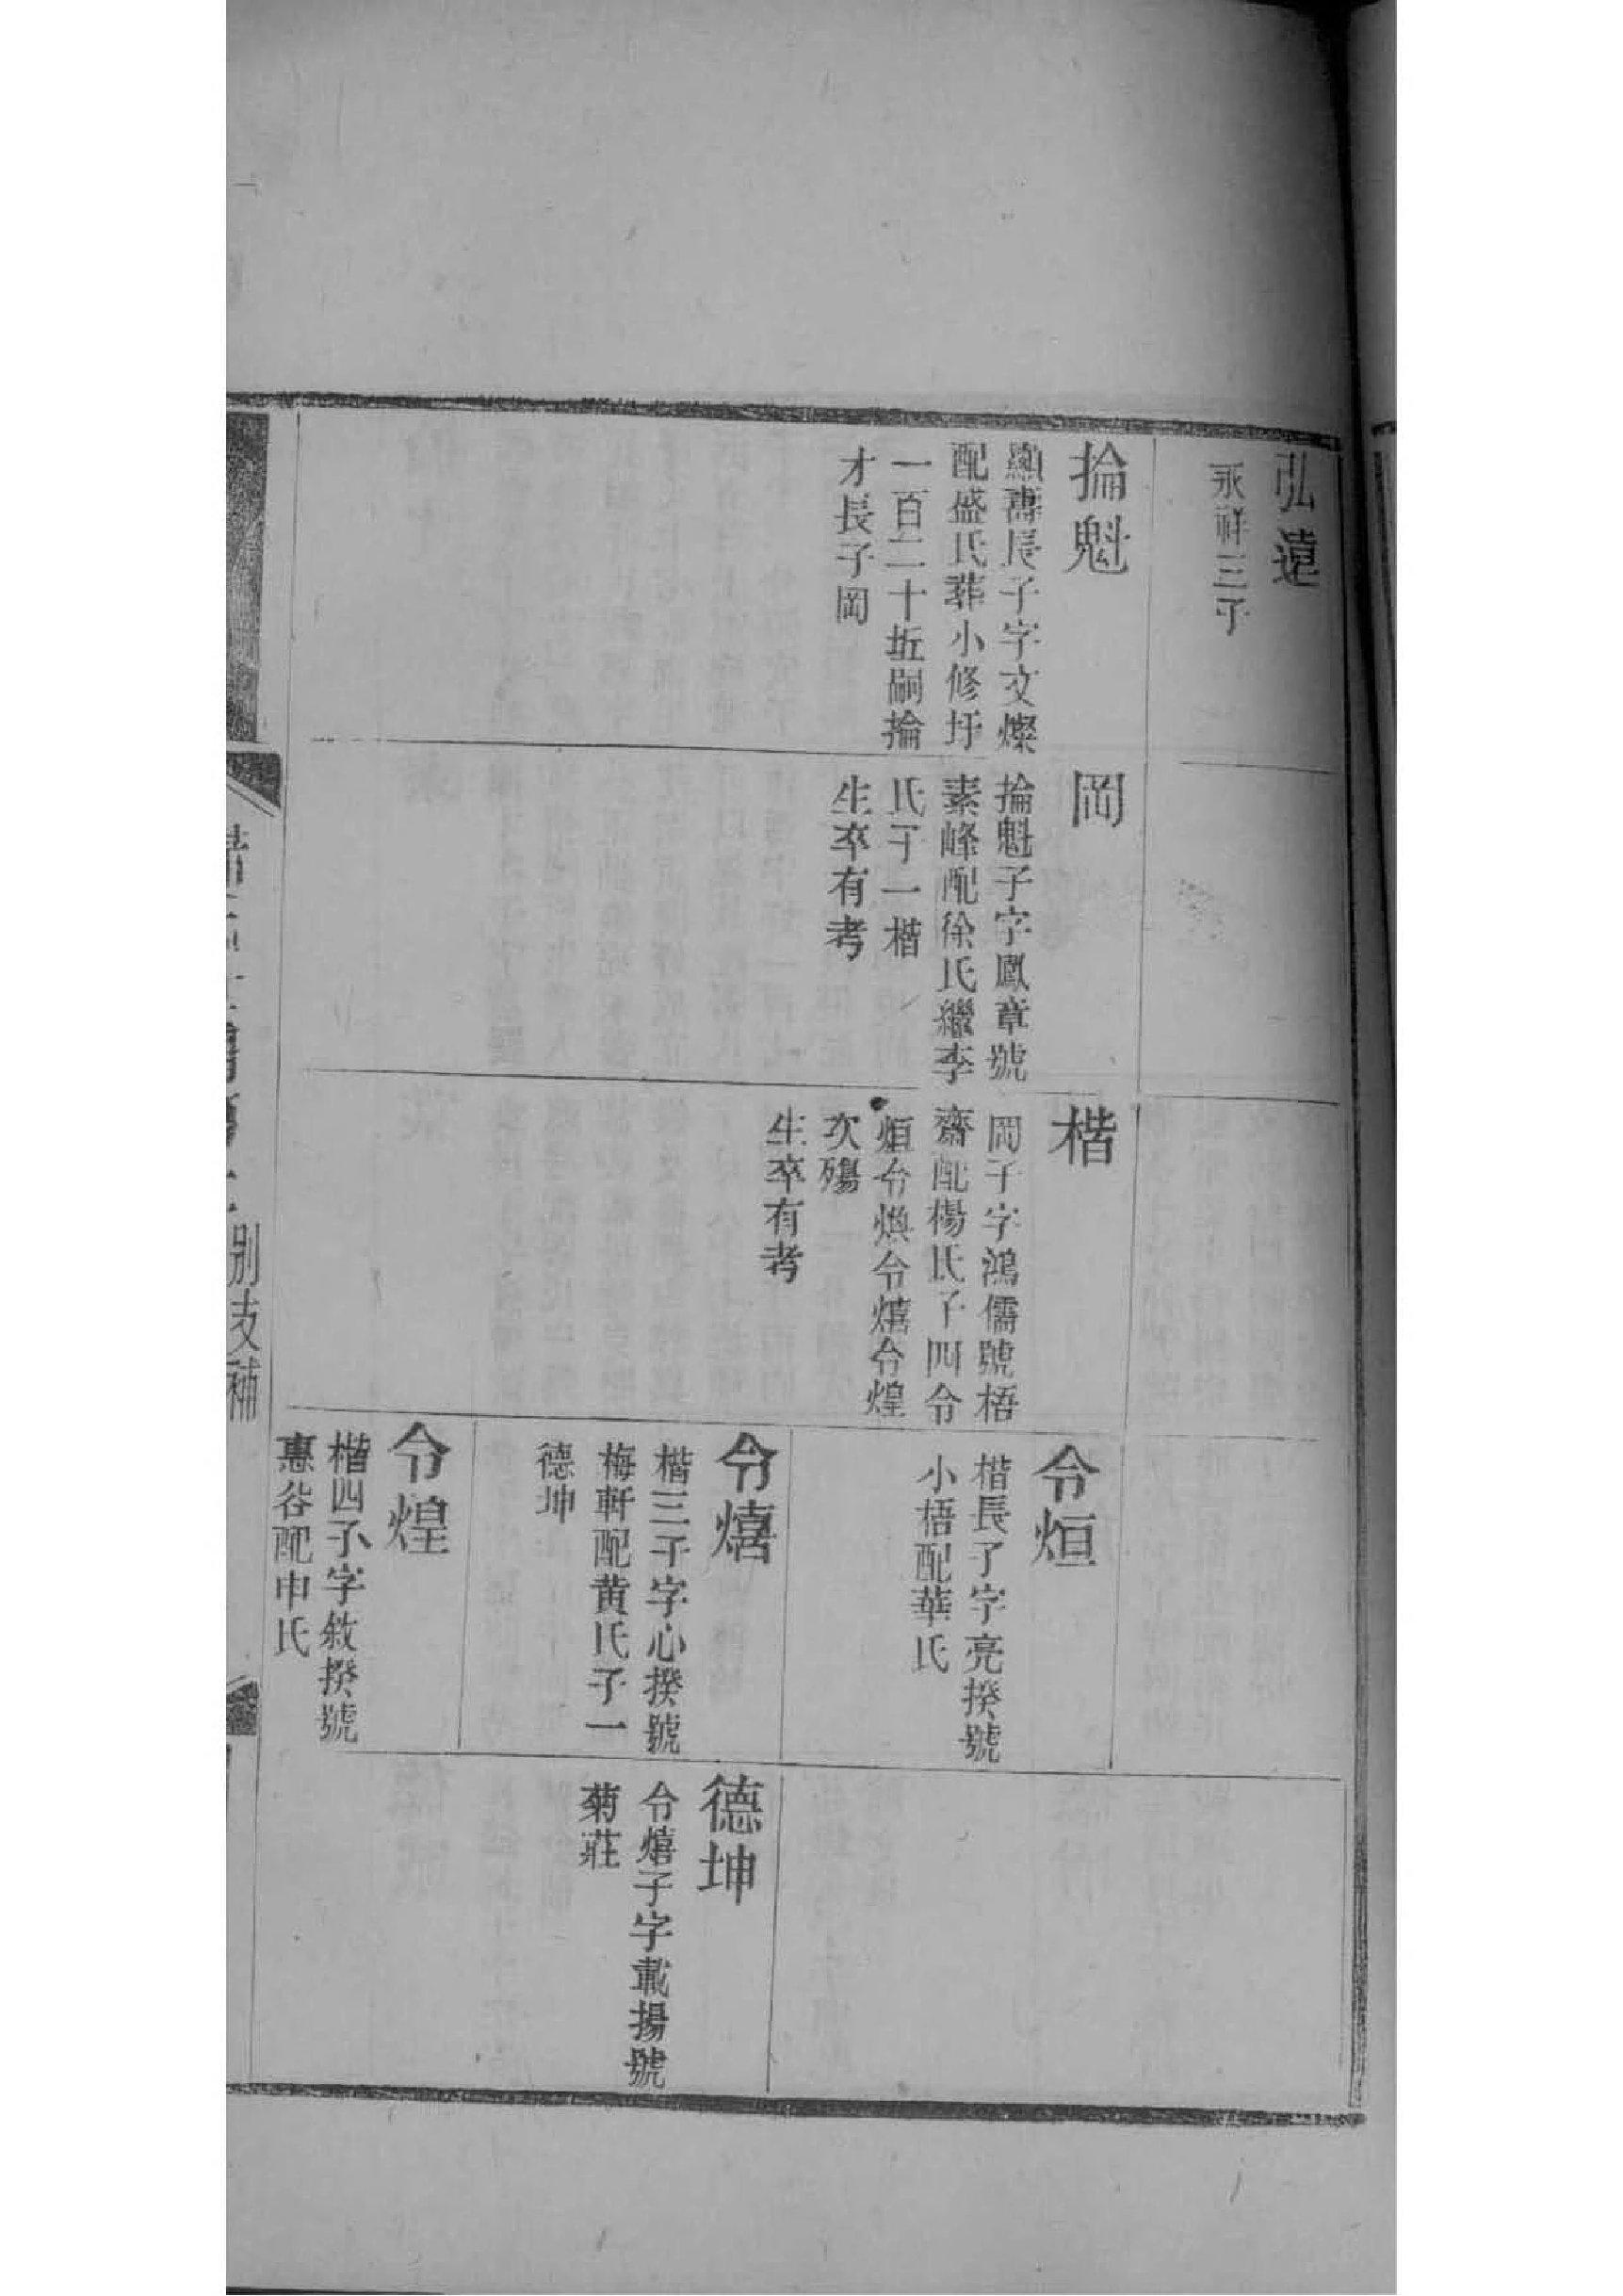 弘遠
永祥三子
掄魁
顯壽長子字文燦
配盛氏葬小修圩
一百二十坵嗣掄
才長子岡
岡
掄魁子字鳳章號
素峰配徐氏繼李
氏子一楷
生卒有考
楷
岡子字鴻儒號梧
齋配楊氏子四令
烜令煥令熺令煌
次殤
生卒有考
令烜
楷長子字亮揆號
小梧配華氏
令熺
楷三子字心揆號
梅軒配黄氏子一
德坤
令煌
楷四子字敘揆號
惠谷配申氏
德坤
令熺子字載揚號
菊莊
別支補